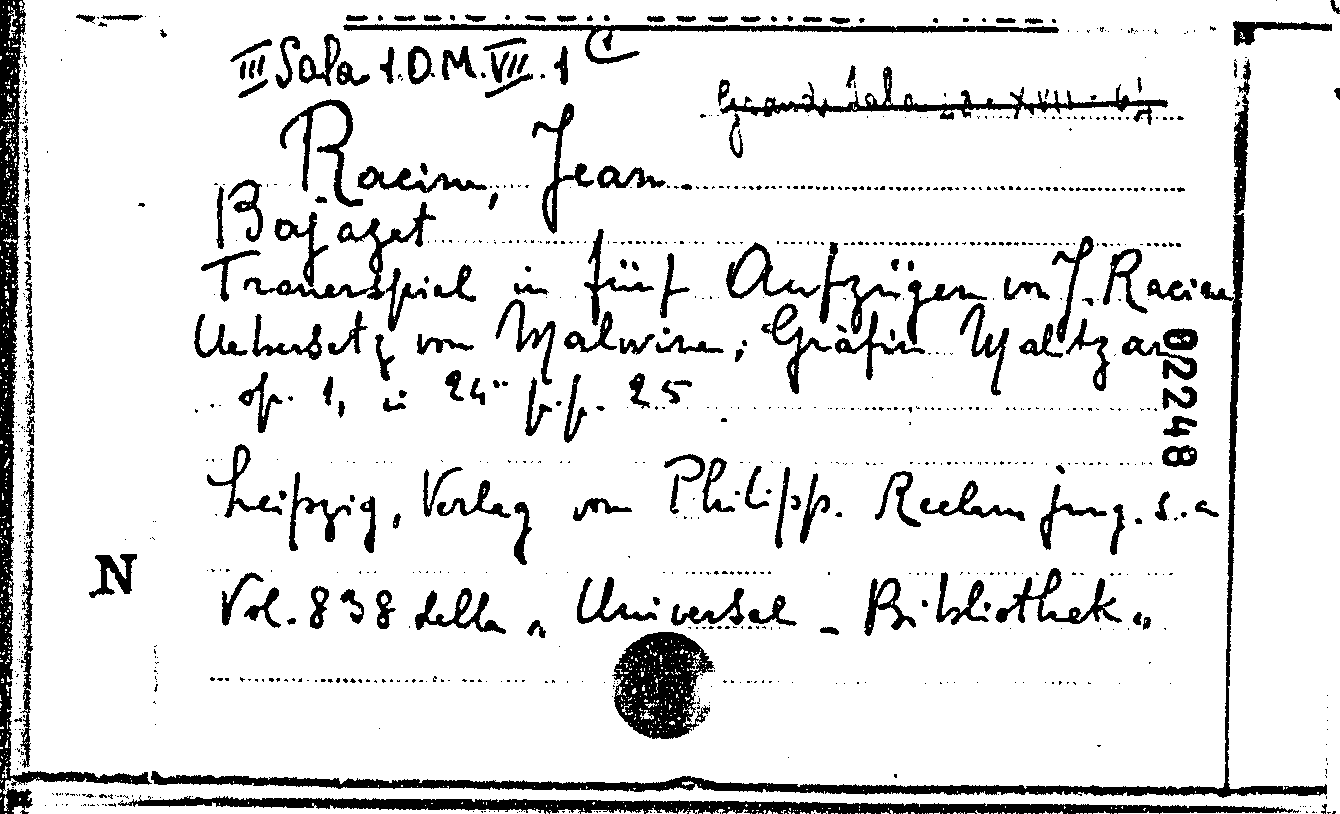 III Sala 1.D.M.VII.1
Grande Sala 22. XVII - 6
Racine, Jean.
Bajazet
Trauerspiel in fünf Aufzügen von J. Racine
Uebersetz von Malwine, Gräfin Maltzan
op. 1, in 24° p.p. 25
Leipzig, Verlag von Philipp. Reclam jung. s.a
Vol. 838 della „ Universal - Bibliothek "
02248
N